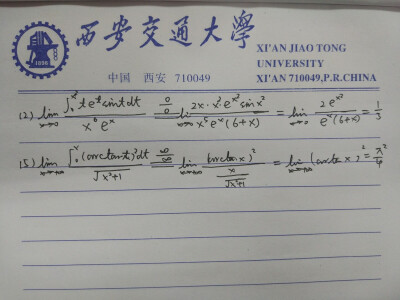 西安交通大學
XI'AN JIAO TONG
UNIVERSITY
中国 西安 710049 XI'AN 710049,P.R.CHINA
(2) lim_{x→0} ∫₀^{x²} t e^t sin t dt / (x⁶ e^x) =(0/0)= lim 2x·x² e^{x²} sin x² / (x⁵ e^x (6+x)) = lim_{x→0} 2e^{x²} / (e^x (6+x)) = 1/3
(5) lim_{x→+∞} ∫₀^x (arctan t)² dt / √(x²+1) =(∞/∞)= lim_{x→+∞} (arctan x)² / (x/√(x²+1)) = lim_{x→+∞} (arctan x)² = π²/4